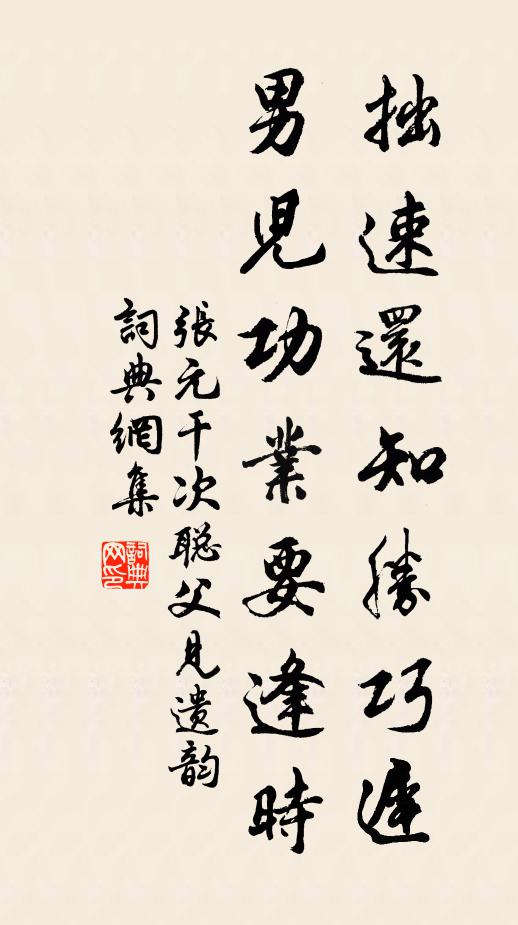 拙速還知勝巧遲
男兒功業要逢時
張元干次聪父見遗韵
詞典網集
詞典网印